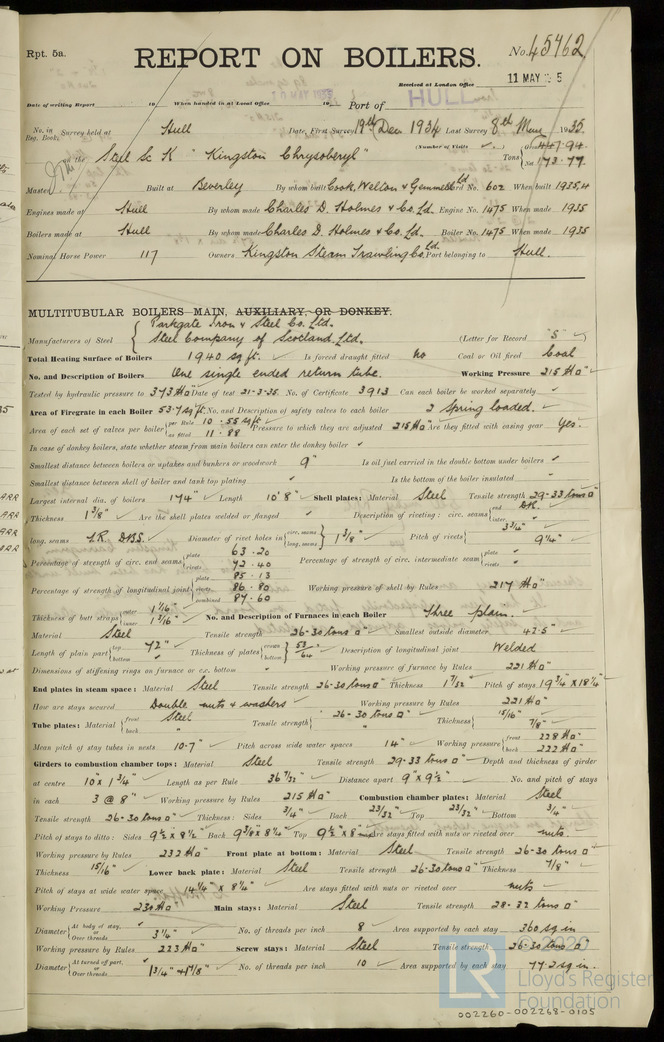 Rpt. 5a.
REPORT ON BOILERS.
No. 45462
Received at London Office
11 MAY
Date of writing Report 19 When handed in at Local Office 19 Port of HULL
No. in Reg. Book. Survey held at Hull Date, First Survey 19th Dec 1934 Last Survey 8th 1935
(Number of Visits)
on the Steel Sc K "Kingston Chrysoberyl" Tons Gross 447.94 Net 173.77
Master Built at Beverley By whom built Cook, Welton & Gemmell Ltd Yard No. 602 When built 1935.4
Engines made at Hull By whom made Charles D. Holmes & Co. Ld. Engine No. 1475 When made 1935
Boilers made at Hull By whom made Charles D. Holmes & Co. Ld. Boiler No. 1475 When made 1935
Nominal Horse Power 117 Owners Kingston Steam Trawling Co. Ld. Port belonging to Hull.
MULTITUBULAR BOILERS MAIN, AUXILIARY, OR DONKEY.
Manufacturers of Steel { Parkgate Iron & Steel Co. Ltd.
Steel Company of Scotland Ltd. (Letter for Record "S")
Total Heating Surface of Boilers 1940 sq ft. Is forced draught fitted No Coal or Oil fired Coal
No. and Description of Boilers One single ended return tube. Working Pressure 215 lb □"
Tested by hydraulic pressure to 373 lb □" Date of test 21-3-35. No. of Certificate 3913 Can each boiler be worked separately ✓
Area of Firegrate in each Boiler 53.7 sq ft. No. and Description of safety valves to each boiler 2 Spring loaded.
Area of each set of valves per boiler { per Rule 10.55 sq ft as fitted 11.88 Pressure to which they are adjusted 215 lb □" Are they fitted with easing gear Yes.
In case of donkey boilers, state whether steam from main boilers can enter the donkey boiler ✓
Smallest distance between boilers or uptakes and bunkers or woodwork 9" Is oil fuel carried in the double bottom under boilers ✓
Smallest distance between shell of boiler and tank top plating ✓ Is the bottom of the boiler insulated ✓
Largest internal dia. of boilers 174" Length 10' 8" Shell plates: Material Steel Tensile strength 29-33 tons □"
Thickness 1 3/8" Are the shell plates welded or flanged ✓ Description of riveting: circ. seams { end DR. inter. "
long. seams T.R. D.B.S. Diameter of rivet holes in { circ. seams long. seams } 1 3/8" Pitch of rivets { 3 3/4" 9 1/4"
Percentage of strength of circ. end seams { plate 63.20 rivets 42.40 Percentage of strength of circ. intermediate seam { plate rivets
Percentage of strength of longitudinal joint { plate 85.13 rivets 86.80 combined 87.60 Working pressure of shell by Rules 217 lb □"
Thickness of butt straps { outer 1 1/16" inner 1 3/16" No. and Description of Furnaces in each Boiler Three plain.
Material Steel Tensile strength 26-30 tons □" Smallest outside diameter 42.5"
Length of plain part { top 72" bottom Thickness of plates { crown bottom } 53/64 Description of longitudinal joint Welded
Dimensions of stiffening rings on furnace or c.c. bottom ✓ Working pressure of furnace by Rules 221 lb □"
End plates in steam space: Material Steel Tensile strength 26-30 tons □" Thickness 1 7/32" Pitch of stays 19 3/4" x 18 1/4"
How are stays secured Double nuts & washers Working pressure by Rules 221 lb □"
Tube plates: Material { front Steel back " Tensile strength { 26-30 tons □" " Thickness { 15/16" 7/8"
Mean pitch of stay tubes in nests 10.7" Pitch across wide water spaces 14" Working pressure { front 228 lb □" back 222 lb □"
Girders to combustion chamber tops: Material Steel Tensile strength 29-33 tons □" Depth and thickness of girder
at centre 10" x 1 3/4" Length as per Rule 36 7/32" Distance apart 9" x 9 1/2" No. and pitch of stays
in each 3 @ 8" Working pressure by Rules 215 lb □" Combustion chamber plates: Material Steel
Tensile strength 26-30 tons □" Thickness: Sides 3/4" Back 23/32" Top 23/32" Bottom 3/4"
Pitch of stays to ditto: Sides 9 1/2" x 8 1/2" Back 9 3/4" x 8 1/4" Top 9 1/2" x 8" Are stays fitted with nuts or riveted over nuts.
Working pressure by Rules 232 lb □" Front plate at bottom: Material Steel Tensile strength 26-30 tons □"
Thickness 15/16" Lower back plate: Material Steel Tensile strength 26-30 tons □" Thickness 7/8"
Pitch of stays at wide water space 14 1/4" x 8 1/4" Are stays fitted with nuts or riveted over nuts
Working Pressure 230 lb □" Main stays: Material Steel Tensile strength 28-32 tons □"
Diameter { At body of stay, or Over threads 3 1/4" No. of threads per inch 8 Area supported by each stay 360 sq in
Working pressure by Rules 223 lb □" Screw stays: Material Steel Tensile strength 26-30 tons □"
Diameter { At turned off part, or Over threads 1 3/4" + 1 7/8" No. of threads per inch 10 Area supported by each stay 77.2 sq in.
LR
Lloyd's Register
Foundation
002260-002268-0105